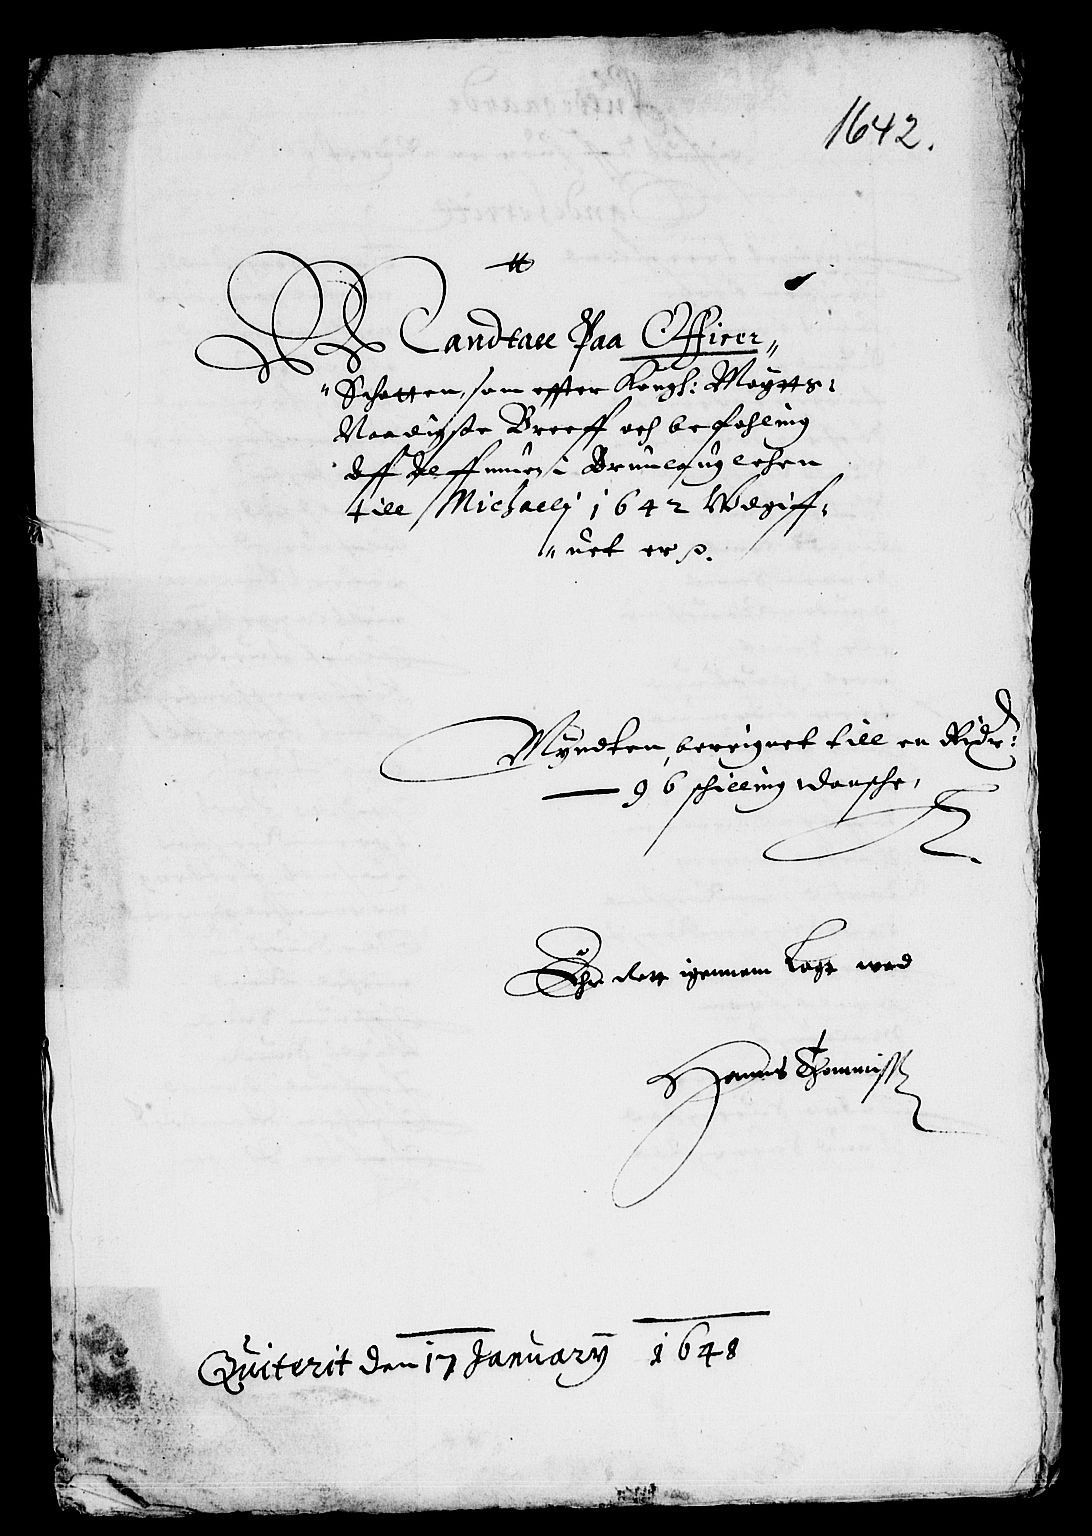 1642.
Mandtall Paa Officer
Schatten, som effter Kongl: Maÿtts:
Naadigste Breeff och befahling
aff i Brunlauglehen
till Michaelj 1642 Vdgiff-
uet er p.
Mÿndten, bereignet till en Rixdr:
96 schilling danske,
Ehr dett igennem lagt wed
Hanns Thommiss
Quiterit den 17 Januarÿ 1648